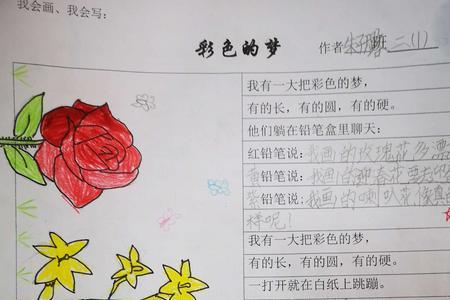 我会画、我会写：
彩色的梦
作者 班 二(1)
我有一大把彩色的梦，
有的长，有的圆，有的硬。
他们躺在铅笔盒里聊天：
红铅笔说：我画的玫瑰花多漂
黄铅笔说：我画的迎春花
紫铅笔说：我画的喇叭花像真
样呢！
我有一大把彩色的梦，
有的长，有的圆，有的硬。
一打开就在白纸上跳蹦。